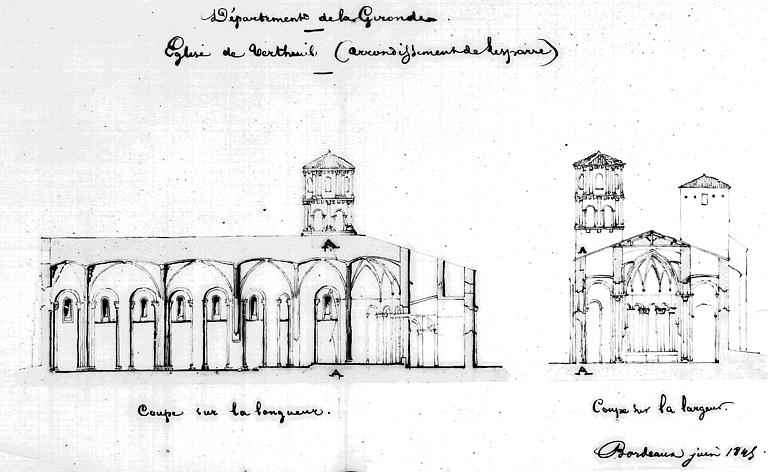 Département de la Gironde.
Eglise de Vertheuil (arrondissement de Lesparre)
A
A
A
A
Coupe sur la longueur.
Coupe sur la largeur.
Bordeaux juin 1845